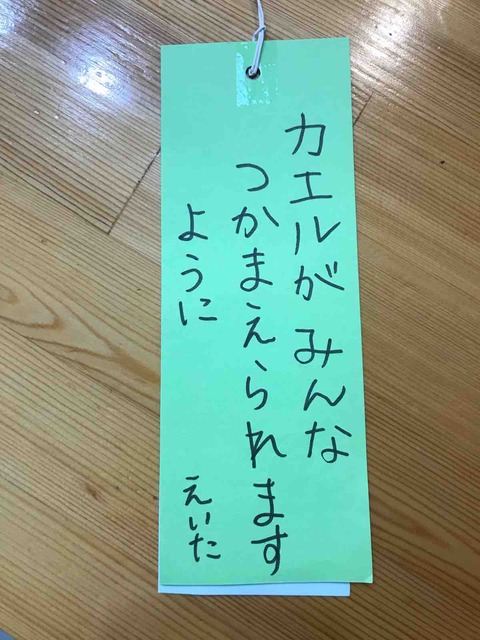 カエルが みんな
つかまえられます
ように
えいた